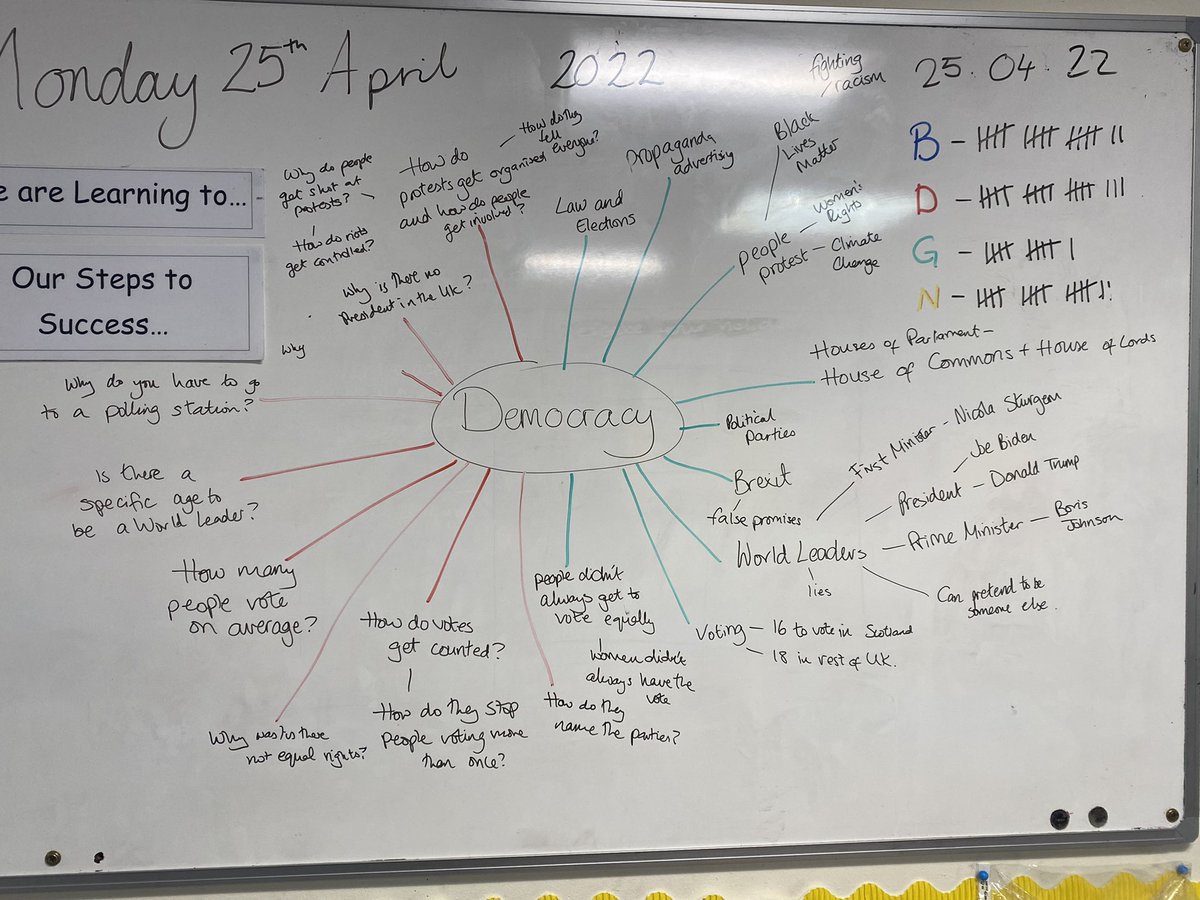 Monday 25th April 2022
25.04.22
e are Learning to...
Our Steps to
Success...
B - 𝍸 𝍸 𝍸 ||
D - 𝍸 𝍸 𝍸 |||
G - 𝍸 𝍸 |
N - 𝍸 𝍸 𝍸 |
Democracy
Why do people
get shot at
protests?
How do riots
get controlled?
How do
protests get organised
and how do people
get involved?
How do they
tell
everyone?
Law and
Elections
Propaganda
advertising
people
protest
Black
Lives
Matter
fighting
racism
Women's
Rights
Climate
Change
Houses of Parlament -
House of Commons + House of Lords
Political
Parties
Brexit
false promises
World Leaders
First Minister - Nicola Sturgeon
President - Donald Trump
Joe Biden
Prime Minister - Boris
Johnson
Can pretend to be
someone else.
lies
Voting - 16 to vote in Scotland
- 18 in rest of UK.
People didn't
always get to
vote equally
Women didn't
always have the
vote
How do they
name the parties?
How do votes
get counted?
How do they stop
people voting more
than once?
Why was there
not equal rights?
How many
people vote
on average?
Is there a
specific age to
be a World leader?
Why do you have to go
to a polling station?
Why
Why is there no
President in the UK?